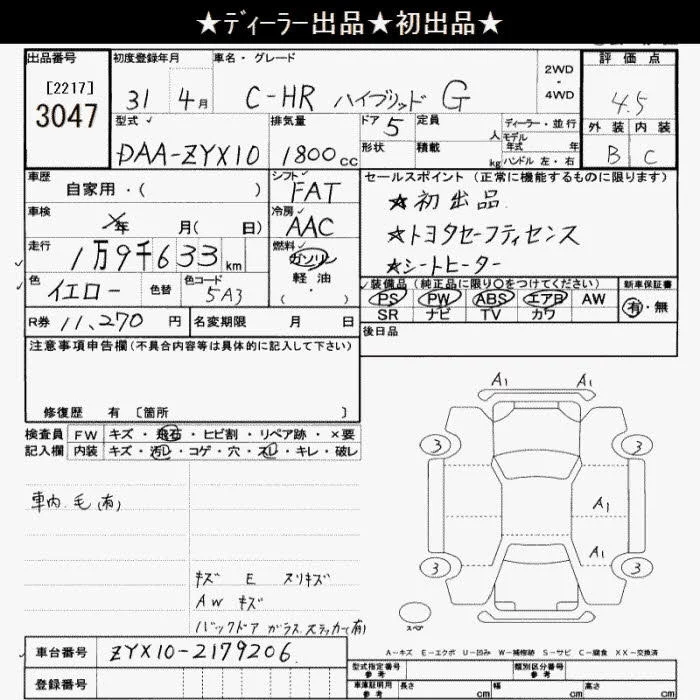 ★ディーラー出品★初出品★
出品番号 初度登録年月 車名・グレード 評価点
[2217] 3047 31 4月 C-HR ハイブリッド G 2WD・4WD 4.5
型式 排気量 ドア 5 定員 人 ディーラー・並行 外装 内装
DAA-ZYX10 1800cc 形状 積載 kg モデル年式 年 B C
ハンドル 左・右
車歴 シフト セールスポイント(正常に機能するものに限ります)
自家用・( ) FAT ★初出品
車検 年 月( 日) 冷房 AAC ★トヨタセーフティセンス
走行 1万9千633km 燃料 ガソリン ★シートヒーター
色 イエロー 色替 色コード 5A3 軽油 ・( )
装備品(純正品に限り○をつけてください) 新車保証書
PS PW ABS エアB AW 有・無
SR ナビ TV カワ
R券 11,270円 名変期限 月 日 後日品
注意事項申告欄(不具合内容等は具体的に記入して下さい)
修復歴 有 [箇所 ]
検査員 FW キズ・飛石・ヒビ割・リペア跡・×要
記入欄 内装 キズ・汚レ・コゲ・穴・スレ・キレ・破レ
A1 A1
3 3
A1
A1
3 3
スペア
車内毛(有)
キズ E スリキズ
AW キズ
バックドアガラスステッカー(有)
A-キズ E-エクボ U-凹み W-補修跡 S-サビ C-腐食 XX-交換済
車台番号 ZYX10-2179206
型式指定番号 参考 類別区分番号 参考
登録番号 車庫証明用 参考 長さ cm 幅 cm 高さ cm